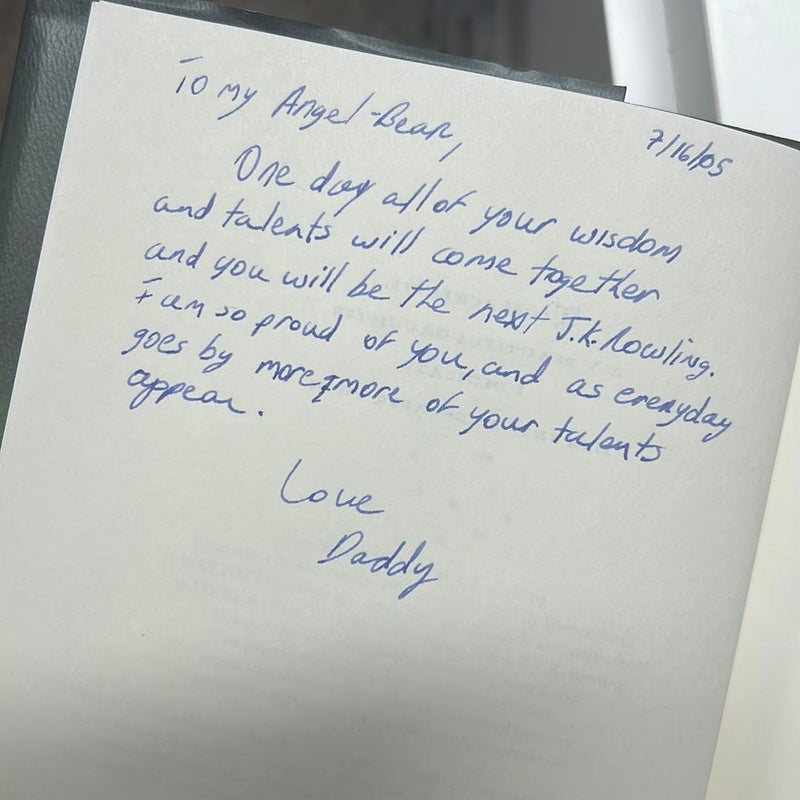 To my Angel-Bear,
7/16/05
One day all of your wisdom
and talents will come together
and you will be the next J.K. Rowling.
I am so proud of you, and as everyday
goes by more & more of your talents
appear.
Love
Daddy